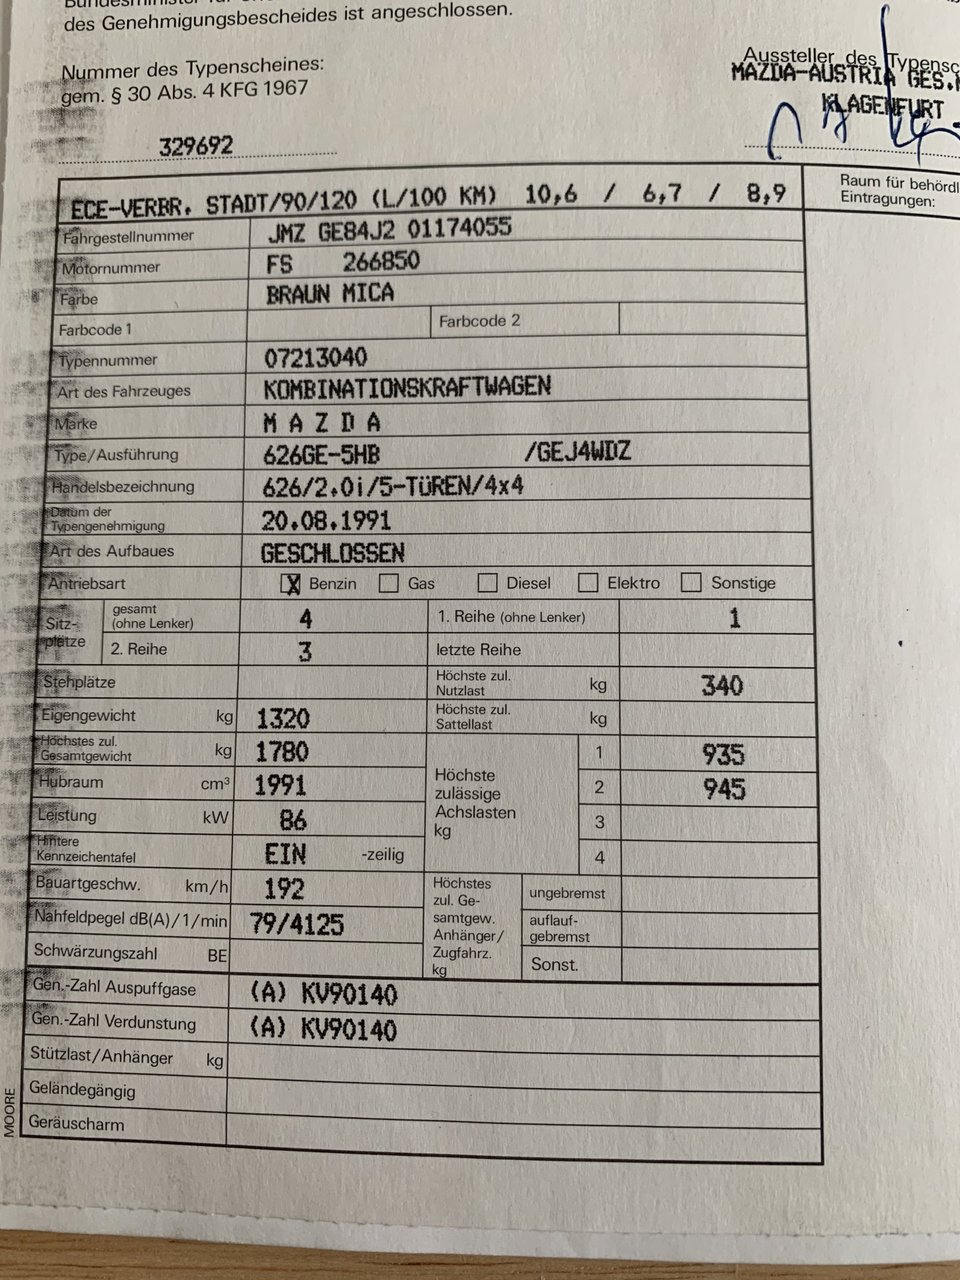 des Genehmigungsbescheides ist angeschlossen.
Nummer des Typenscheines:
gem. § 30 Abs. 4 KFG 1967
329692
Aussteller des Typensc
MAZDA-AUSTRIA GES.
KLAGENFURT
Raum für behördl
Eintragungen:
ECE-VERBR. STADT/90/120 (L/100 KM) 10,6 / 6,7 / 8,9
Fahrgestellnummer JMZ GE84J2 01174055
Motornummer FS 266850
Farbe BRAUN MICA
Farbcode 1 Farbcode 2
Typennummer 07213040
Art des Fahrzeuges KOMBINATIONSKRAFTWAGEN
Marke M A Z D A
Type/Ausführung 626GE-5HB /GEJ4WDZ
Handelsbezeichnung 626/2.0i/5-TÜREN/4x4
Datum der
Typengenehmigung 20.08.1991
Art des Aufbaues GESCHLOSSEN
Antriebsart X Benzin Gas Diesel Elektro Sonstige
Sitz-
plätze
gesamt
(ohne Lenker) 4 1. Reihe (ohne Lenker) 1
2. Reihe 3 letzte Reihe
Stehplätze Höchste zul.
Nutzlast kg 340
Eigengewicht kg 1320 Höchste zul.
Sattellast kg
Höchstes zul.
Gesamtgewicht kg 1780
Hubraum cm³ 1991
Leistung kW 86
Hintere
Kennzeichentafel EIN -zeilig
Höchste
zulässige
Achslasten
kg
1 935
2 945
3
4
Bauartgeschw. km/h 192
Nahfeldpegel dB(A)/1/min 79/4125
Schwärzungszahl BE
Höchstes
zul. Ge-
samtgew.
Anhänger/
Zugfahrz.
kg
ungebremst
auflauf-
gebremst
Sonst.
Gen.-Zahl Auspuffgase (A) KV90140
Gen.-Zahl Verdunstung (A) KV90140
Stützlast/Anhänger kg
Geländegängig
Geräuscharm
MOORE